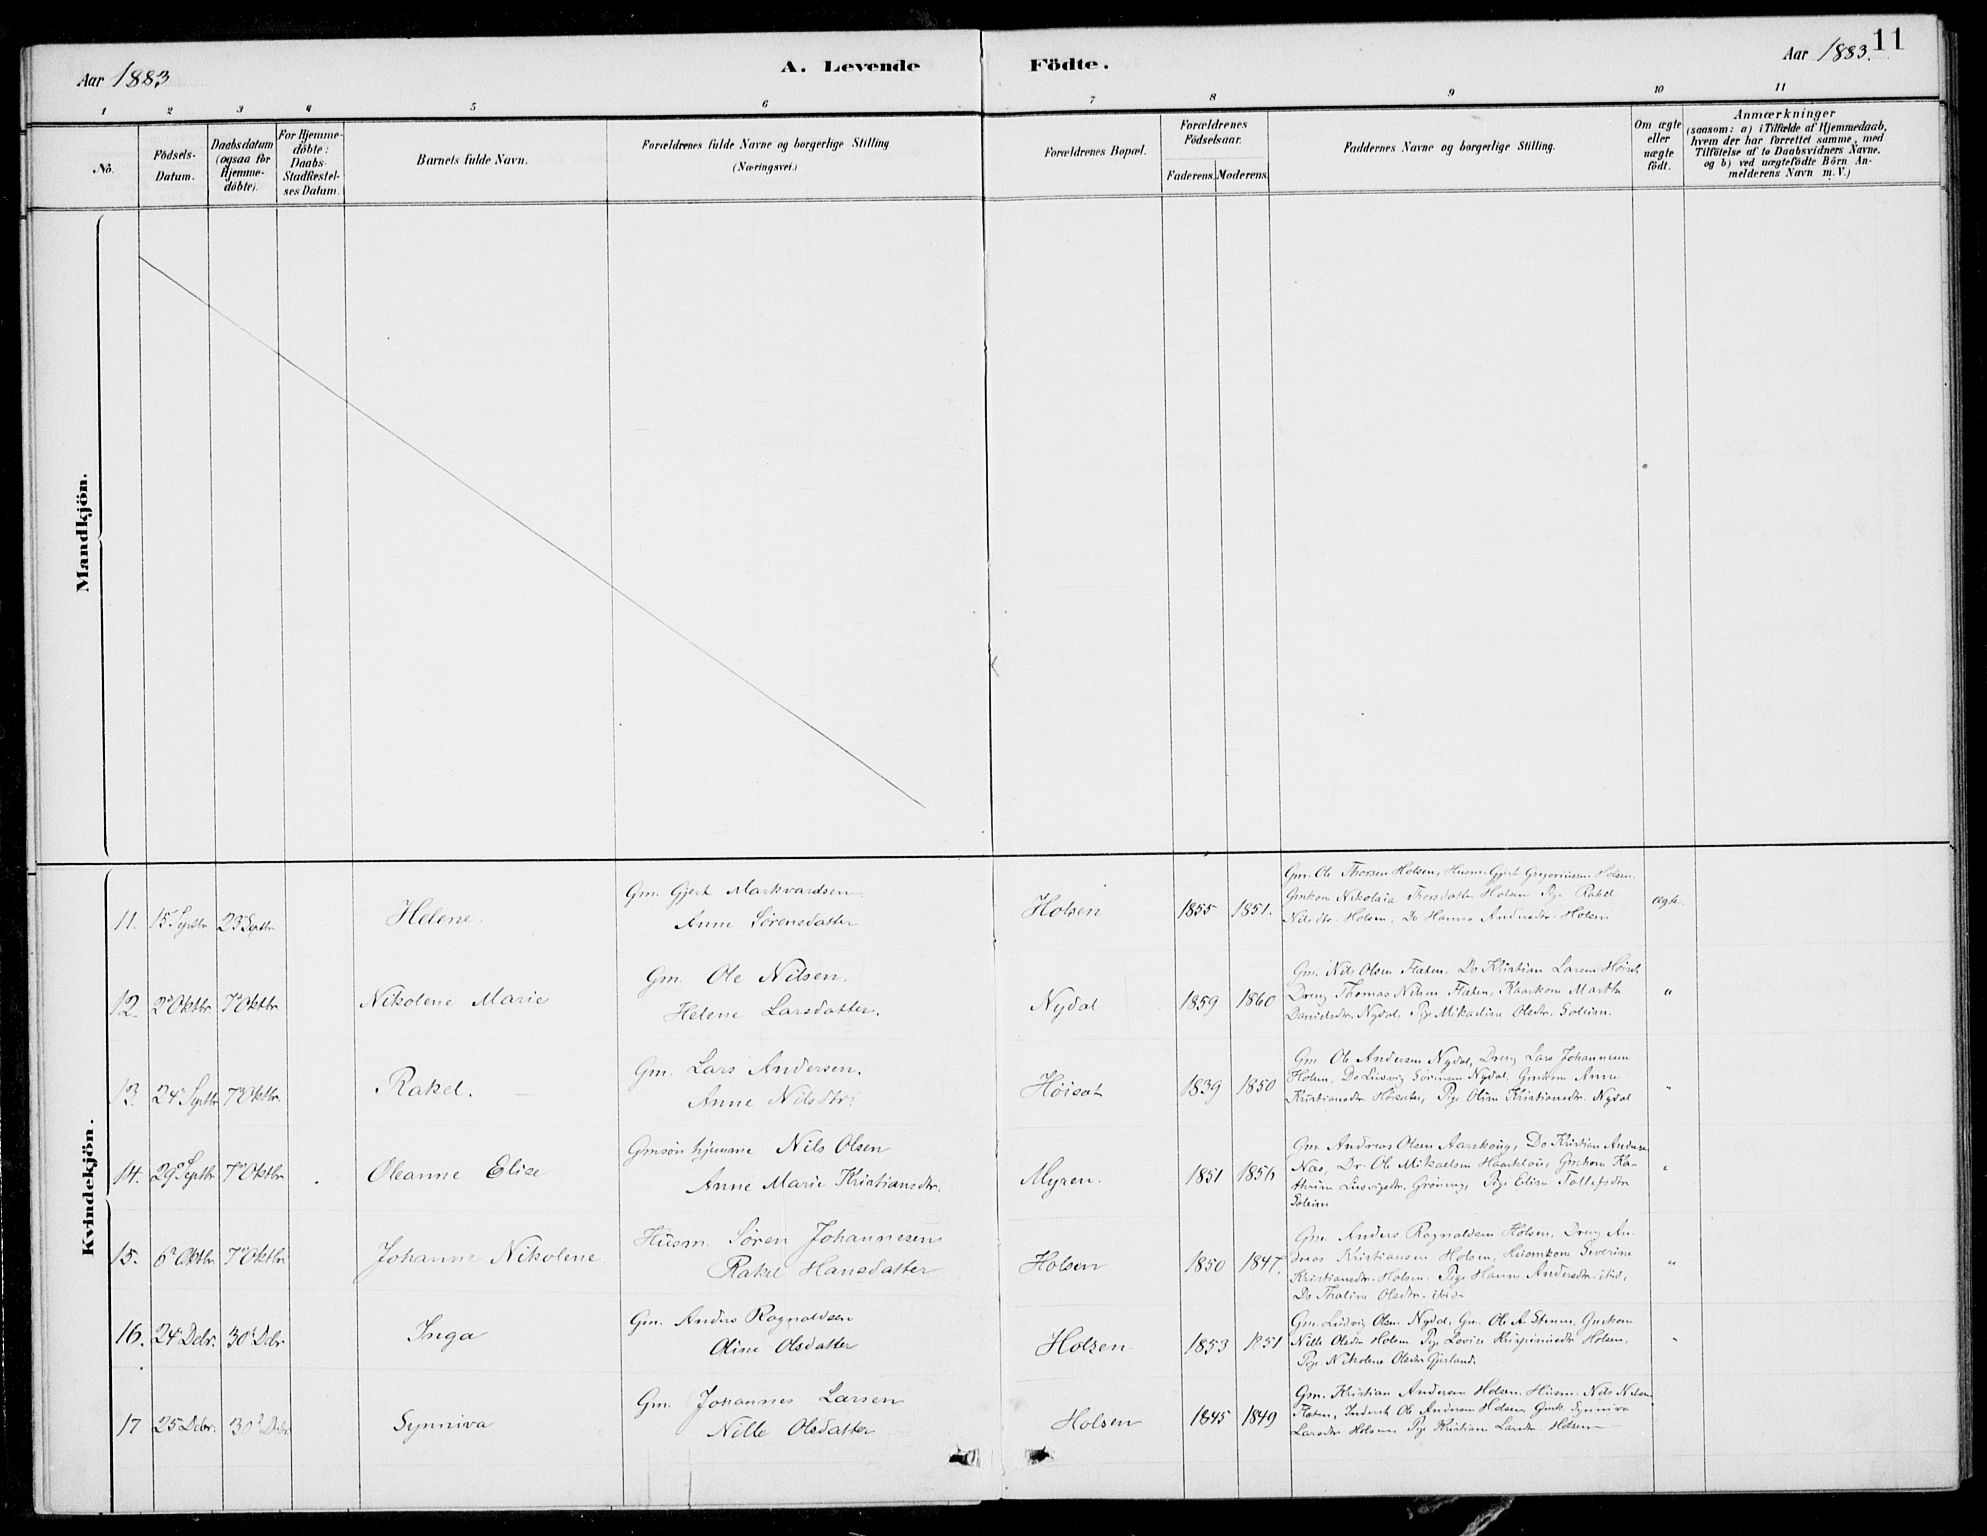 Aar 1883
A. Levende
Födte.
Aar 1883.
11
1 2 3 4 5 6 7 8 9 10 11
No.
Födsels-
Datum.
Daabsdatum
(ogsaa for
Hjemme-
döbte).
For Hjemme-
döbte:
Daabs-
Stadfæstel-
ses Datum.
Barnets fulde Navn.
Forældrenes fulde Navne og borgerlige Stilling
(Næringsvei.)
Forældrenes Bopæl.
Forældrenes
Födselsaar.
Faderens. Moderens.
Faddernes Navne og borgerlige Stilling.
Om ægte
eller
uægte
födt.
Anmærkninger
(saasom: a) i Tilfælde af Hjemmedaab,
hvem der har forrettet samme, med
Tilföielse af to Daabsvidners Navne.
og b) ved uægtefödte Börn An-
melderens Navn m. V.)
Mandkjön.
Kvindekjön.
11. 15 Septbr 23 Septbr
Helene.
Gm. Gjert Markvardsen
Anne Sørensdatter
Holsen
1855 1851.
Gm. Ole Thorsen Holsen, Husm. Gjert Gregoriussen Holsen.
Gmkom Nikolaia Thorsdatter Holsen Pge Rakel
Nilsdtr. Holsen, Do Hanna Andersdtr. Holsen
ægte.
12. 2 Oktbr 7 Oktbr
Nikolene Marie
Gm. Ole Nilsen.
Helene Larsdatter.
Nydal
1859 1860
Gm. Nils Olsen Flaten, Do Kristian Larsen
Dreng Thomas Nilsen Flaten, Kaarkom Martha
Danielsdtr. Nydal, Pge Mikaeline Olsdtr. Soleim.
"
13. 24 Septbr 7 Oktbr
Rakel.
Gm. Lars Andersen.
Anne Nilsdtr.
Høisæt
1839 1850
Gm Ole Andersen Nydal, Dreng Lars Johannesen
Holsen, Do Ludvig Sørensen Nydal, Gmkom Anne
Kristiansdtr. Høisæter, Pge Oline Kristiansdtr. Nydal
"
14. 29 Septbr 7 Oktbr
Oleanne Elise
Gmsøn hjemme Nils Olsen
Anne Marie Kristiansdtr.
Myren.
1851 1856
Gm Andreas Olsen Aarskoug, Do Kristian Andersen
Næs, Dr. Ole Mikaelsen Haarklou, Gmkom Ka-
thrine Ludvigsdtr. Grøneng, Pge Eline Tollefsdtr
Soleim
"
15. 6 Oktbr 7 Oktbr
Johanne Nikolene
Husm. Søren Johannesen
Rakel Hansdatter
Holsen
1850 1847.
Gm. Anders Ragnaldsen Holsen, Dreng An-
dreas Kristiansen Holsen, Husmkom Severine
Kristiansdtr. Holsen. Pge Hanne Andersdtr. ibid,
Do Thaline Olsdtr. ibid.
"
16. 24 Debr. 30 Debr
Inga
Gm. Anders Ragnaldsen
Oline Olsdatter
Holsen
1853 1851
Gm. Ludvig Olsen Nydal, Gm. Ole A. Gmkom
Nille Olsdtr Holsen Pge Lovise Holsen,
Pge Nikolene Olsdtr Gjerland.
"
17 25 Debr. 30 Debr
Synniva
Gm. Johannes Larsen
Nille Olsdatter
Holsen
1845 1849
Gm. Kristian Andersen Holsen. Husm. Nils Nilsen
Flaten, Inderst Ole Andersen Holsen, Gmk. Synniva
Larsdtr Holsen Pge Kristine Larsdtr. Holsen